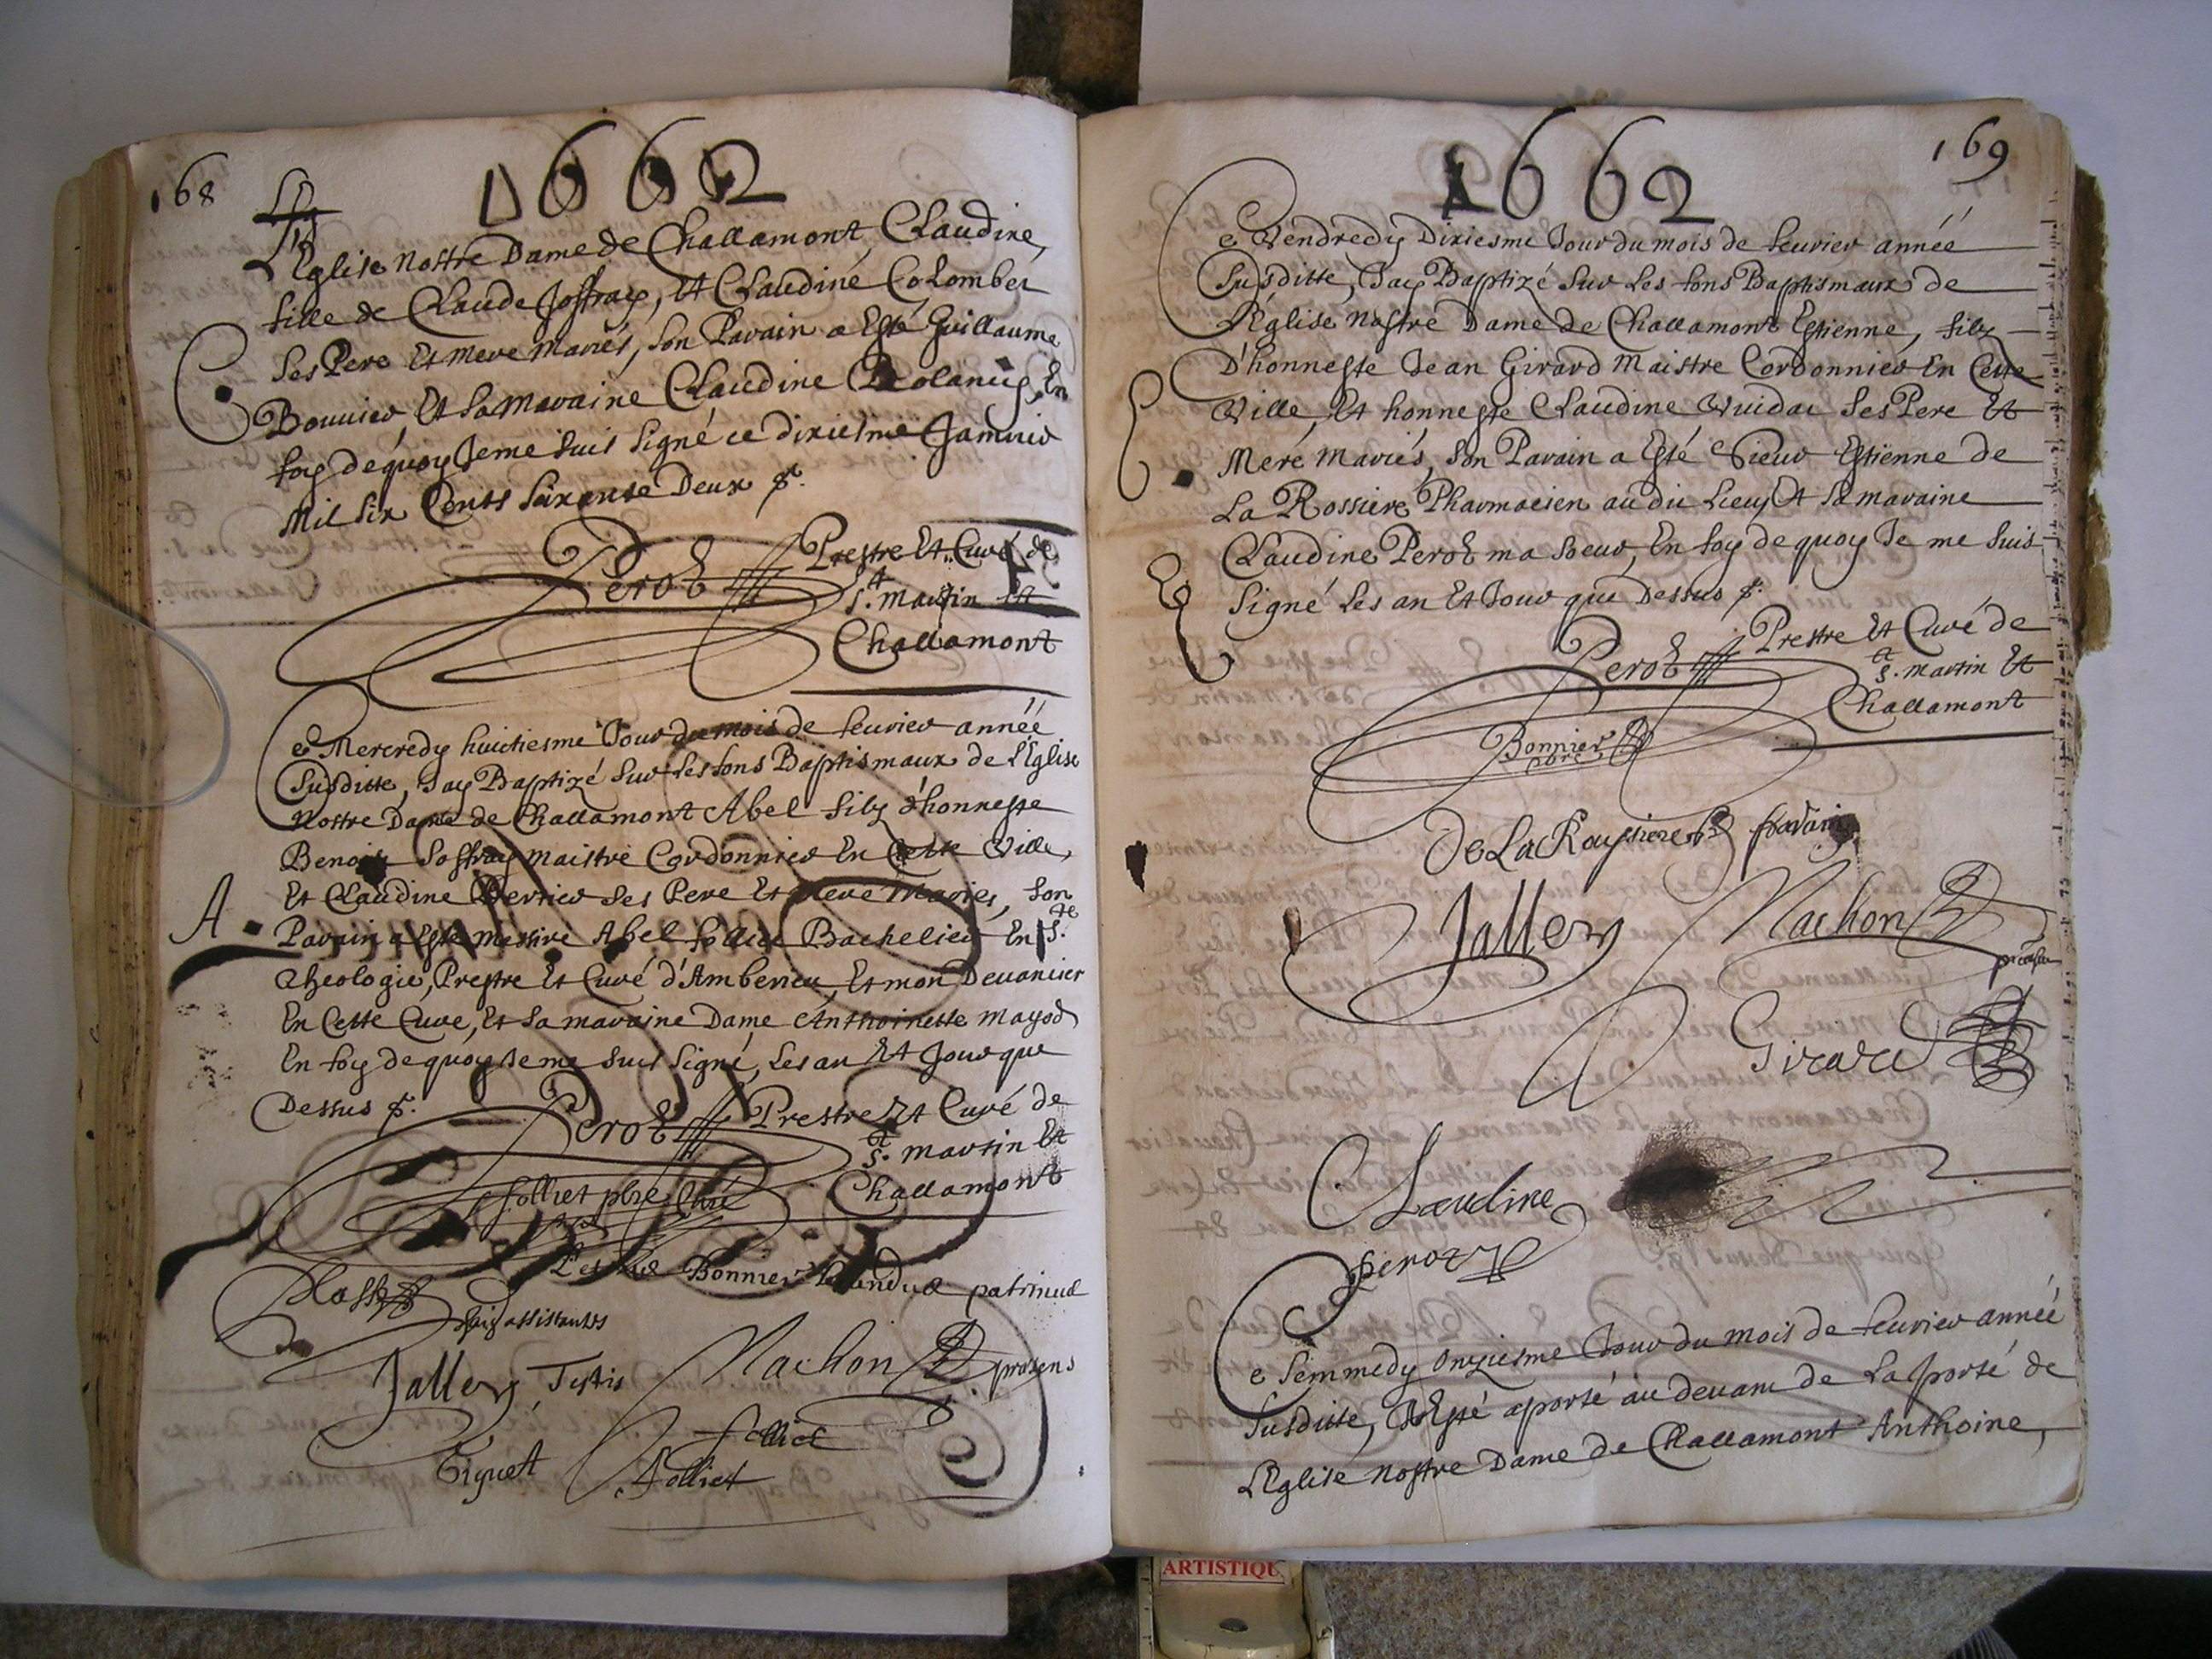 168
1662
L'Eglise nostre Dame de Challamont, Claudine,
fille de Claude Joffray, Et Claudine Colomber
ses Pere Et Mere mariés, son Parain a Esté Guillaume
Bouuier, Et sa maraine Claudine En
foy dequoy Je me suis signé ce dixiesme Januier
Mil six Cents soixante Deux
Perot Prestre Et Curé de
St. Martin Et
Challamont
C
Ce Mercredy huictiesme Jour du mois de feurier année
susditte, J'ay Baptizé sur les fons Baptismaux de L'Eglise
nostre Dame de Challamont Abel filz d'honneste
Benoist Joffray maistre Cordonnier En Cette Ville,
Et Claudine Ses Pere Et Mere Mariés, son
A
Parain a Esté messire Abel folliet Bachelier En Ste
Theologie, Prestre Et Curé d'Amberieu, Et mon Deuancier
En Cette Cure, Et sa maraine Dame Anthoinette Mayod
En foy dequoy Je me suis signé, Les an Et Jour que
Dessus
Perot Prestre Et Curé de
St. Martin Et
Challamont
folliet pbre Curé
Bonnier
Jallery Testis Machon presens
folliet
Tiguet folliet
169
1662
Ce Vendredy Dixiesme Jour du mois de feurier année
susditte, J'ay Baptizé sur Les fons Baptismaux de
L'Eglise nostre Dame de Challamont Estienne, filz
D'honneste Jean Girard Maistre Cordonnier En Cette
Ville, Et honneste Claudine Vuidat Ses Pere Et
Mere Mariés, son Parain a Esté Sieur Estienne de
La Rossiere Pharmacien audit Lieu, Et sa maraine
Claudine Perot ma soeur, En foy de quoy Je me suis
signé Les an Et Jour que Dessus
E
Perot Prestre Et Curé de
St. Martin Et
Challamont
Bonnier
pbre
De La Roussiere parain
Jallery Machon
Girard
Claudine
perot
Ce semmedy onziesme Jour du mois de feurier année
susditte, a Esté aporté au deuant de La porte de
L'Eglise nostre Dame de Challamont Anthoine,
ARTISTIQU